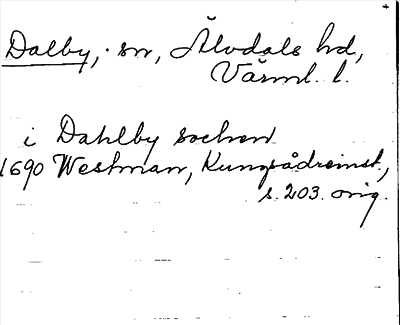 Dalby, sn, Älvdals hd,
Värml. l.
i Dahlby sochen
1690 Westman, Kungsådreinst.,
s. 203. orig.